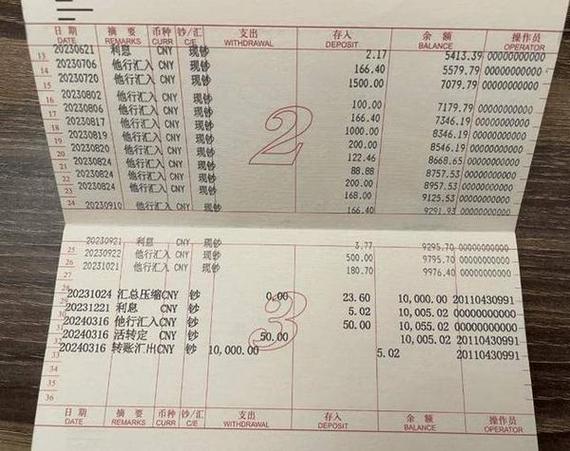 日期 摘要 币种 钞/汇 支出 存入 余额 操作员
DATE REMARKS CURR C/E WITHDRAWAL DEPOSIT BALANCE OPERATOR
13 20230621 利息 CNY 现钞 2.17 5413.39 00000000000
14 20230706 他行汇入 CNY 现钞 166.40 5579.79 00000000000
15 20230720 他行汇入 CNY 现钞 1500.00 7079.79 00000000000
16 20230802 他行汇入 CNY 现钞 100.00 7179.79 00000000000
17 20230806 他行汇入 CNY 现钞 166.40 7346.19 00000000000
18 20230817 他行汇入 CNY 现钞 1000.00 8346.19 00000000000
19 20230819 他行汇入 CNY 现钞 200.00 8546.19 00000000000
20 20230820 他行汇入 CNY 现钞 122.46 8668.65 00000000000
21 20230824 他行汇入 CNY 现钞 88.88 8757.53 00000000000
22 20230824 他行汇入 CNY 现钞 200.00 8957.53 00000000000
23 20230824 他行汇入 CNY 现钞 168.00 9125.53 00000000000
24 20230910 他行汇入 CNY 现钞 166.40 9291.93 00000000000
2
25 20230921 利息 CNY 现钞 3.77 9295.70 00000000000
26 20230922 他行汇入 CNY 现钞 500.00 9795.70 00000000000
27 20231021 他行汇入 CNY 现钞 180.70 9976.40 00000000000
20231024 汇总压缩CNY 钞 0.00 23.60 10,000.00 20110430991
20231221 利息 CNY 钞 5.02 10,005.02 00000000000
20240316 他行汇入CNY 钞 50.00 10,055.02 00000000000
20240316 活转定 CNY 钞 50.00 10,005.02 20110430991
20240316 转账汇出CNY 钞 10,000.00 5.02 20110430991
3
34
35
36
日期 摘要 币种 钞/汇 支出 存入 余额 操作员
DATE REMARKS CURR C/E WITHDRAWAL DEPOSIT BALANCE OPERATOR